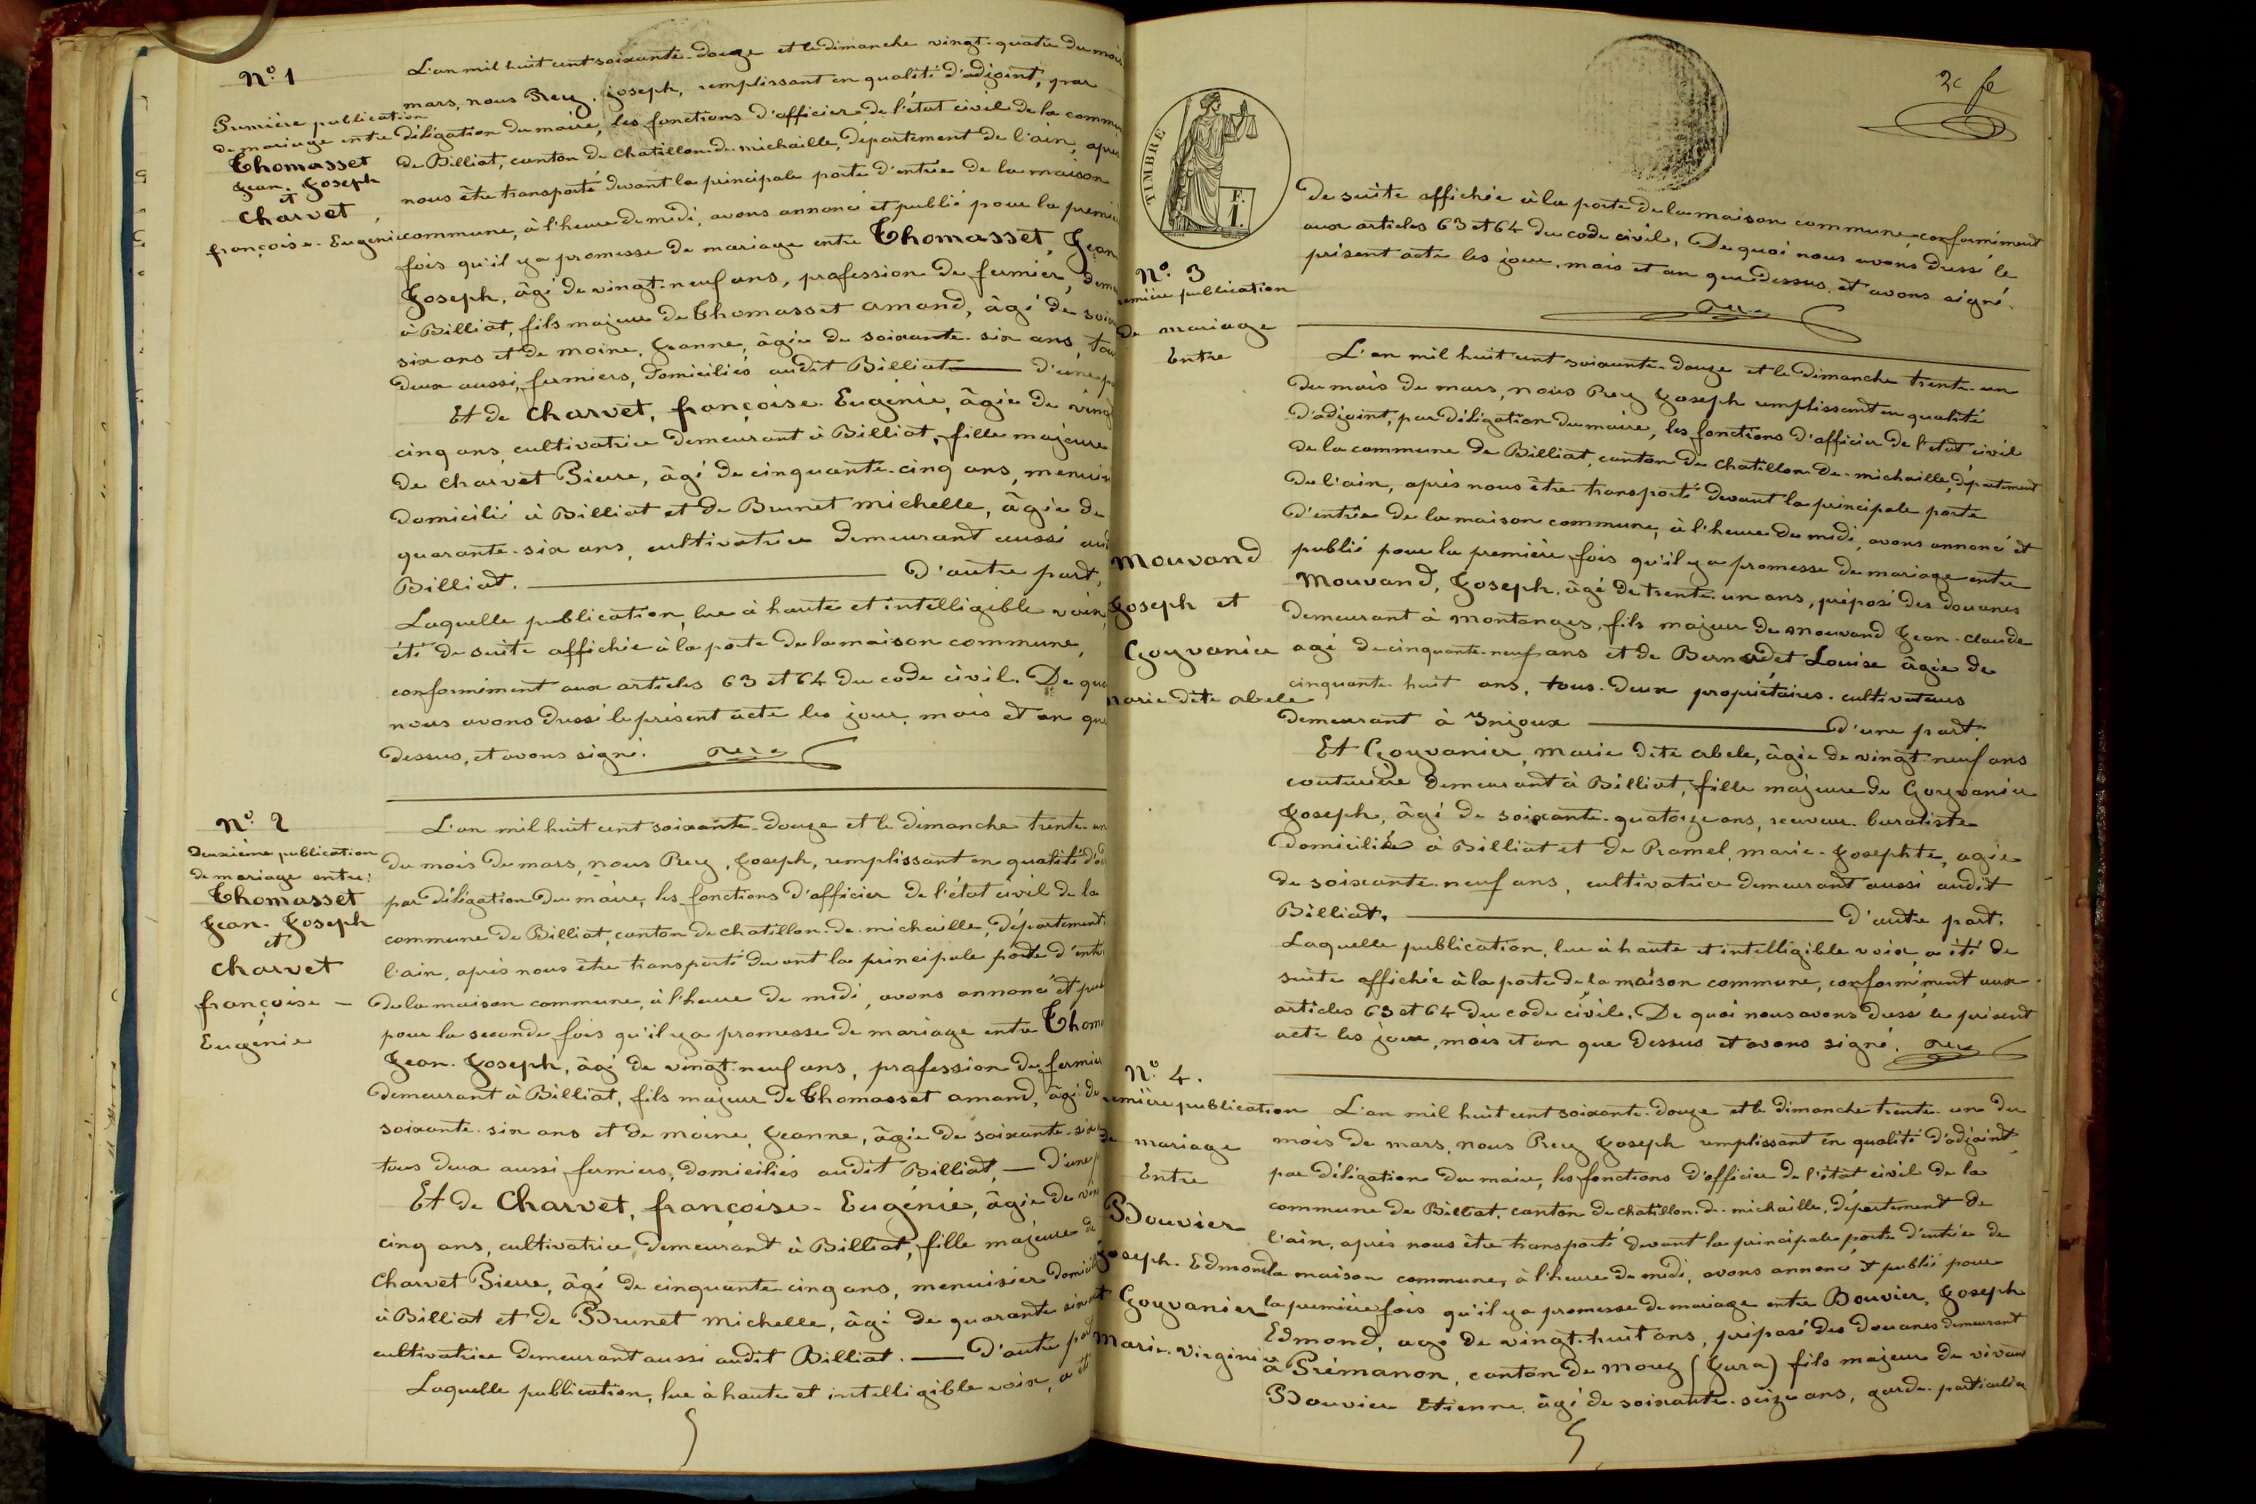 N° 1
Première publication
de mariage entre
Thomasset
Jean-Joseph
et
Charvet
françoise-Eugénie
L'an mil huit cent soixante-douze et le dimanche vingt-quatre du mois
mars, nous Rey, Joseph, remplissant en qualité d'adjoint, par
délégation du maire, les fonctions d'officier de l'état civil de la commun
de Billiat, canton de chatillon-de-michaille, département de l'ain, après
nous être transporté devant la principale porte d'entrée de la maison
commune, à l'heure de midi, avons annoncé et publié pour la premiè
fois qu'il y a promesse de mariage entre Thomasset, Jean
Joseph, âgé de vingt-neuf ans, profession de fermier, deme
à Billiat, fils majeur de Thomasset amand, âgé de soix
six ans et de moine, Jeanne, âgée de soixante-six ans, tou
deux aussi fermiers, domiciliés audit Billiat — d'une p
Et de Charvet, françoise-Eugénie, âgée de vingt
cinq ans cultivatrice demeurant à Billiat, fille majeure
de charvet Pierre, âgé de cinquante-cinq ans, menuis
domicilié à Billiat et de Brunet michelle, âgée de
quarante-six ans, cultivatrice demeurant aussi aud
Billiat. — D'autre part,
Laquelle publication, lue à haute et intelligible voix,
été de suite affichée à la porte de la maison commune,
conformément aux articles 63 et 64 du code civil. De quo
nous avons dressé le présent acte les jour, mois et an que
dessus, et avons signé. Rey
N° 2
Deuxième publication
de mariage entre:
Thomasset
Jean-Joseph
et
charvet
françoise —
Eugénie
L'an mil huit cent soixante-douze et le dimanche trente-un
du mois de mars, nous Rey, Joseph, remplissant en qualité d'ad
par délégation du maire, les fonctions d'officier de l'état civil de la
commune de Billiat, canton de chatillon-de-michaille, département
l'ain, après nous être transporté devant la principale porte d'entr
de la maison commune, à l'heure de midi, avons annoncé et pub
pour la seconde fois qu'il y a promesse de mariage entre Thom
Jean-Joseph, âgé de vingt-neuf ans, profession de fermier
demeurant à Billiat, fils majeur de Thomasset amand, âgé de
soixante-six ans et de moine, Jeanne, âgée de soixante-six
tous deux aussi fermiers, domiciliés audit Billiat, — D'une p
Et de Charvet, françoise-Eugénie, âgée de vin
cinq ans, cultivatrice, demeurant à Billiat, fille majeure de
Charvet Pierre, âgé de cinquante-cinq ans, menuisier domicil
à Billiat et de Brunet michelle, âgé de quarante six
cultivatrice demeurant aussi audit Billiat. — D'autre part
Laquelle publication, lue à haute et intelligible voix, a été
2e f
TIMBRE
F.
1.
de suite affichée à la porte de la maison commune, conformément
aux articles 63 et 64 du code civil, De quoi nous avons dressé le
présent acte les jour, mois et an que dessus, et avons signé.
Rey
N° 3
remière publication
de mariage
Entre
Mouvand
Joseph et
Goyvanier
Marie dite abele
L'an mil huit cent soixante-douze et le dimanche trente-un
du mois de mars, nous Rey Joseph remplissant en qualité
d'adjoint, par délégation du maire, les fonctions d'officier de l'état civil
de la commune de Billiat, canton de chatillon-de-michaille, département
de l'ain, après nous être transporté devant la principale porte
d'entrée de la maison commune, à l'heure de midi, avons annoncé et
publié pour la première fois qu'il y a promesse de mariage entre
Mouvand, Joseph, âgé de trente-un ans, préposé des douanes
demeurant à montanges, fils majeur de Mouvand Jean-claude
agé de cinquante-neuf ans et de Bernadet Louise âgée de
cinquante-huit ans, tous-deux propriétaires-cultivateurs
demeurant à Injoux — D'une part.
Et Goyvanier, Marie dite abele, âgée de vingt-neuf ans
couturière demeurant à Billiat, fille majeure de Goyvanier
Joseph, âgé de soixante-quatorze ans, receveur-buraliste
domicilié à Billiat et de Ramel, marie-Josephte, agée
de soixante-neuf ans, cultivatrice demeurant aussi audit
Billiat, — D'autre part.
Laquelle publication, lue à haute et intelligible voix, a été de
suite affichée à la porte de la maison commune, conformément aux
articles 63 et 64 du code civile. De quoi nous avons dressé le présent
acte les jour, mois et an que dessus et avons signé. Rey
N° 4.
remière publication
de mariage
Entre
Bouvier
Joseph-Edmond
et Goyvanier
Marie-Virginie
L'an mil huit cent soixante-douze et le dimanche trente-un du
mois de mars, nous Rey Joseph remplissant en qualité d'adjoint,
par délégation du maire, les fonctions d'officier de l'état civil de la
commune de Billiat, canton de chatillon-de-michaille, département de
l'ain, après nous être transporté devant la principale porte d'entrée de
la maison commune, à l'heure de midi, avons annoncé et publié pour
la première fois qu'il y a promesse de mariage entre Bouvier, Joseph
Edmond, agé de vingt-huit ans, préposé des douanes demeurant
à Prémanon, canton de Morez (Jura) fils majeur de vivant
Bouvier Etienne, âgé de soixante-seize ans, garde-particulier